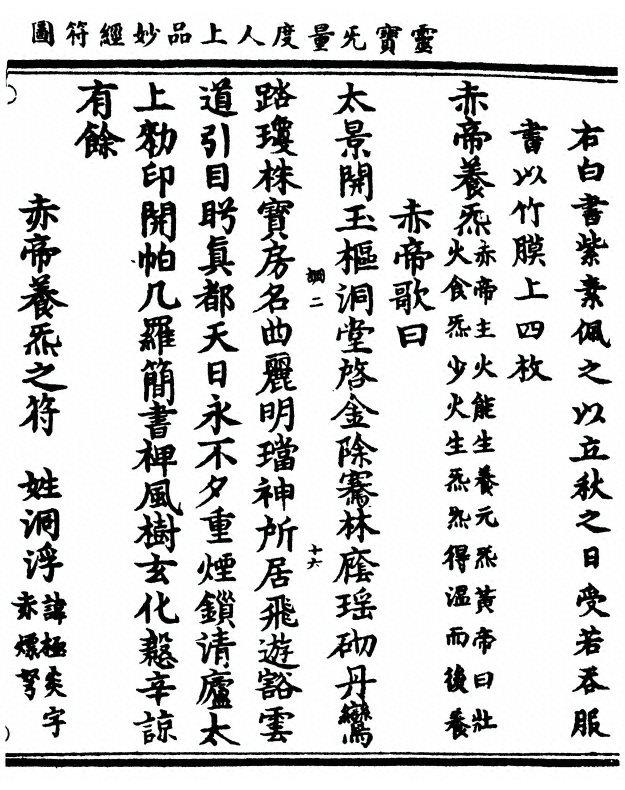 靈寶无量度人上品妙經符圖
右白書紫素佩之以立秋之日受若吞服
書以竹膜上四枚
赤帝養炁
赤帝主火能生養元炁黃帝曰壯
火食炁少火生炁炁得溫而後養
赤帝歌曰
太景開玉樞洞堂啓金除騫林廕瑶砌丹鸞
二
十六
踏瓊株寶房名曲麗明璫神所居飛遊豁雲
道引目眄真都天日永不夕重煙鎖清廬太
上勑印開帕几羅簡書椑風樹玄化辛諒
有餘
赤帝養炁之符 姓洞浮
諱極炎字
赤熛弩